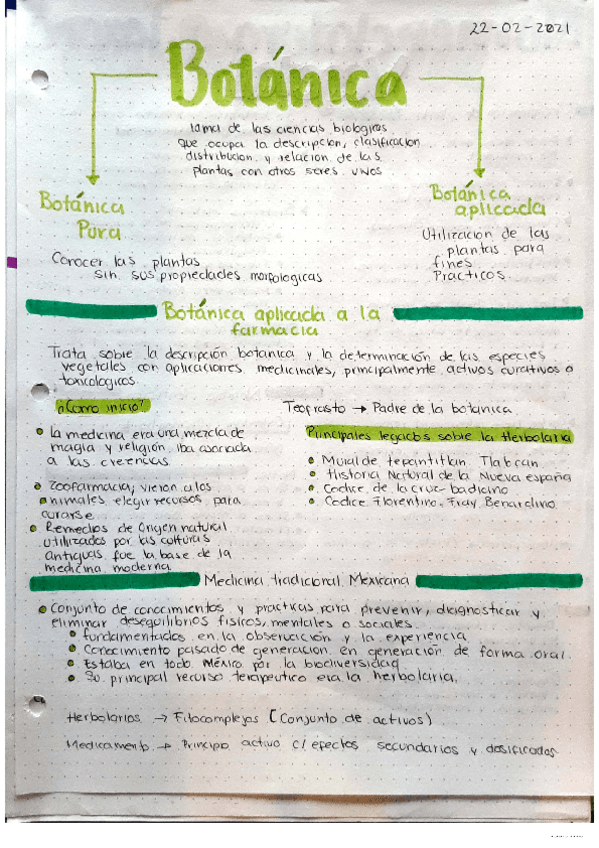 22-02-2021
Botánica
rama de las ciencias biologicas
que ocupa la descripcion, clasificacion
distribucion y relacion de las
plantas con otros seres vivos
Botánica
Pura
Conocer las plantas
sin sus propiedades morfologicas
Botánica
aplicada
Utilizacion de las
plantas para
fines
Practicos.
Botánica aplicada a la
farmacia
Trata sobre la descripción botanica y la determinación de las especies
vegetales con aplicaciones medicinales, principalmente activos curativos o
toxicologicos.
¿Como inicio?
• la medicina era una mezcla de
magia y religión, iba asociada
a las creencias.
• Zoofarmacia, vieron a los
animales elegir recursos para
curarse
• Remedios de Origen natural
utilizados por las culturas
antiguas, fue la base de la
medicina moderna
Teofrasto → Padre de la botanica
Principales legados sobre la Herbolaria
• Mural de tepantitlan. Tlalocan
• Historia Natural de la Nueva españa
• Codice de la cruz-badiano
• Codice Florentino. Fray Benardino
Medicina tradicional Mexicana
• Conjunto de conocimientos y practicas para prevenir, diagnosticar y
eliminar desequilibrios fisicos, mentales o sociales.
• fundamentados en la observación y la experiencia
• Conocimiento pasado de generacion en generación de forma oral.
• Estaba en todo México por la biodiversidad
• Su principal recurso terapeutico era la herbolaria.
Herbolarios → Fitocomplejos (Conjunto de activos)
Medicamento → Principo activo c/efectos secundarios y dosificados